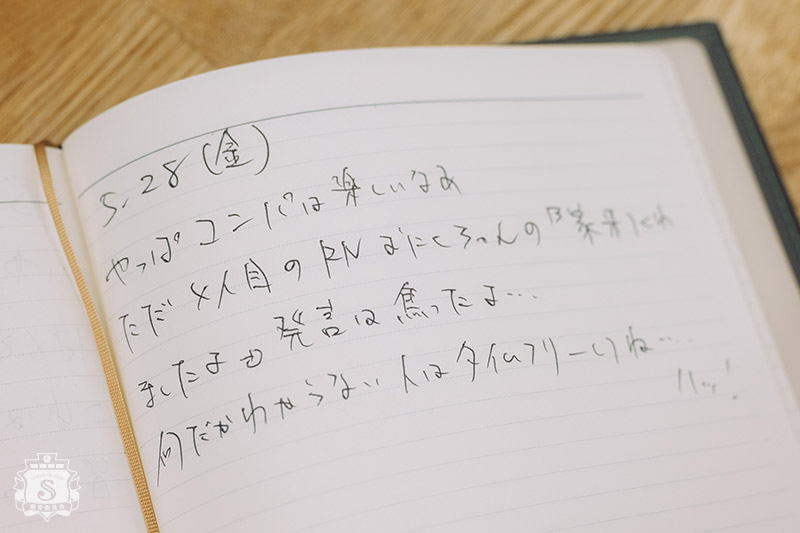 5.28(金)
やっぱコンパは楽しいなあ
ただ4人目のRN おにくちゃんの「
ましたよの 発言は焦ったよ…
何だかわからない人はタイムフリーしてね…
ハッ!
S